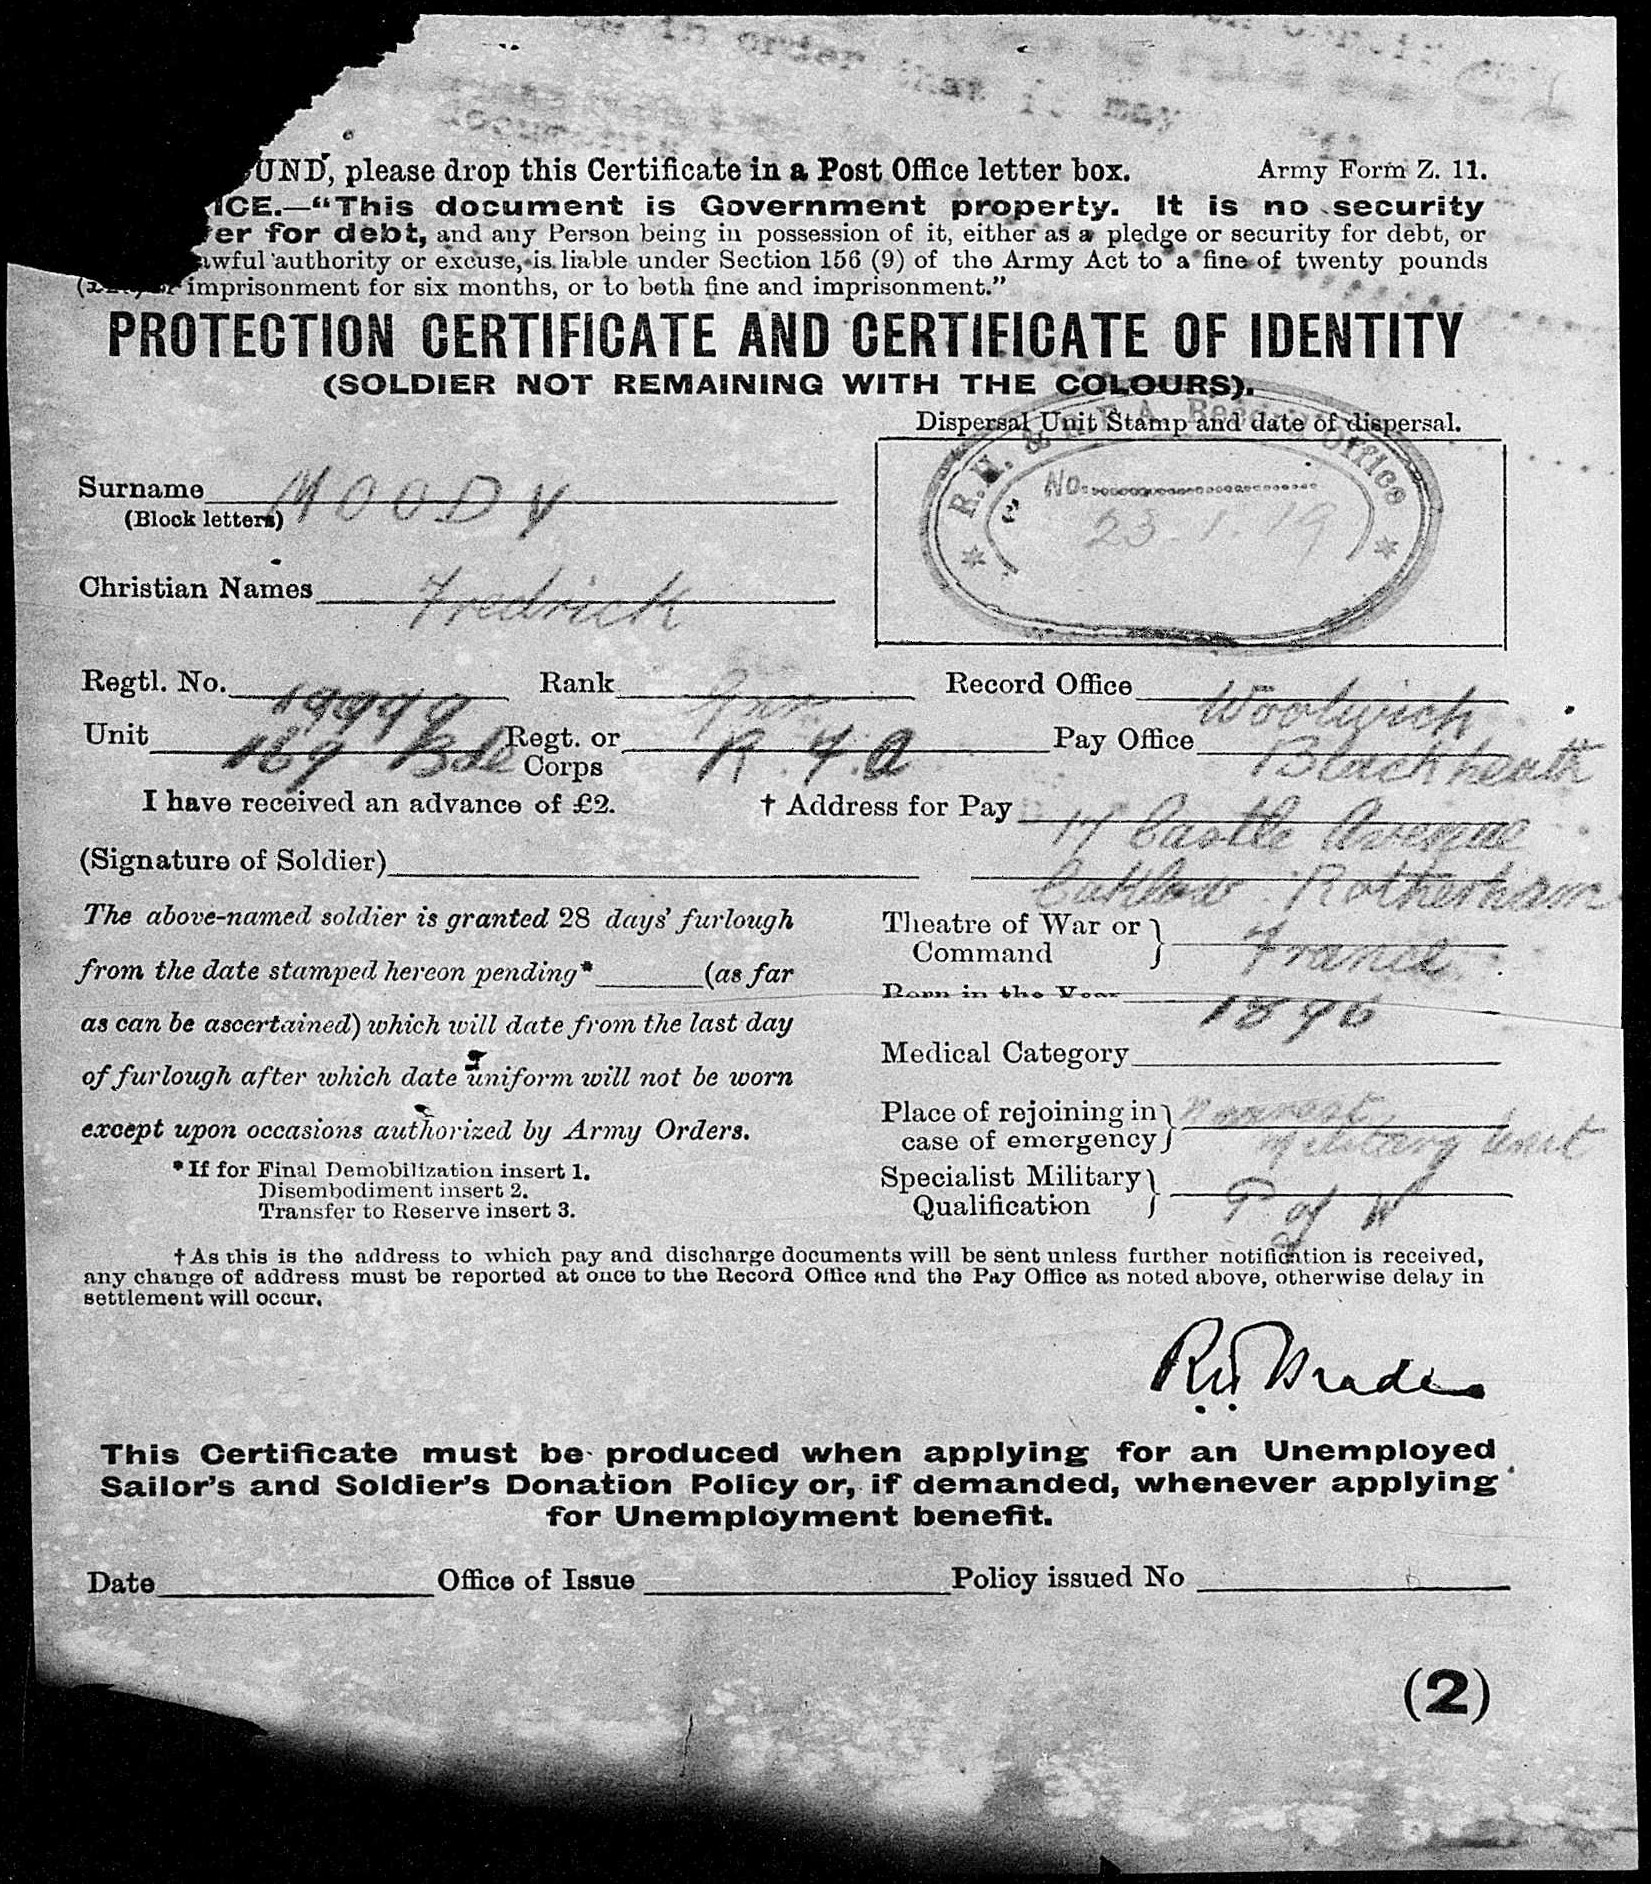 in order that it may
UND, please drop this Certificate in a Post Office letter box. Army Form Z. 11.
ICE.—"This document is Government property. It is no security
er for debt, and any Person being in possession of it, either as a pledge or security for debt, or
awful authority or excuse, is liable under Section 156 (9) of the Army Act to a fine of twenty pounds
imprisonment for six months, or to both fine and imprisonment."
PROTECTION CERTIFICATE AND CERTIFICATE OF IDENTITY
(SOLDIER NOT REMAINING WITH THE COLOURS).
Dispersal Unit Stamp and date of dispersal.
R.H. & R.F.A. Record Office
No.
23.1.19
Surname MOODY
(Block letters)
Christian Names Fredrick
Regtl. No. Rank Gnr Record Office Woolwich
Unit 169 Bde Regt. or Corps R.F.A Pay Office Blackheath
I have received an advance of £2. † Address for Pay 17 Castle Avenue
(Signature of Soldier) Rotherham
The above-named soldier is granted 28 days' furlough
from the date stamped hereon pending* (as far
as can be ascertained) which will date from the last day
of furlough after which date uniform will not be worn
except upon occasions authorized by Army Orders.
*If for Final Demobilization insert 1.
Disembodiment insert 2.
Transfer to Reserve insert 3.
Theatre of War or Command } France
Born in the Year 1896
Medical Category
Place of rejoining in case of emergency } nearest military unit
Specialist Military Qualification } P of W
† As this is the address to which pay and discharge documents will be sent unless further notification is received,
any change of address must be reported at once to the Record Office and the Pay Office as noted above, otherwise delay in
settlement will occur.
This Certificate must be produced when applying for an Unemployed
Sailor's and Soldier's Donation Policy or, if demanded, whenever applying
for Unemployment benefit.
Date Office of Issue Policy issued No
(2)